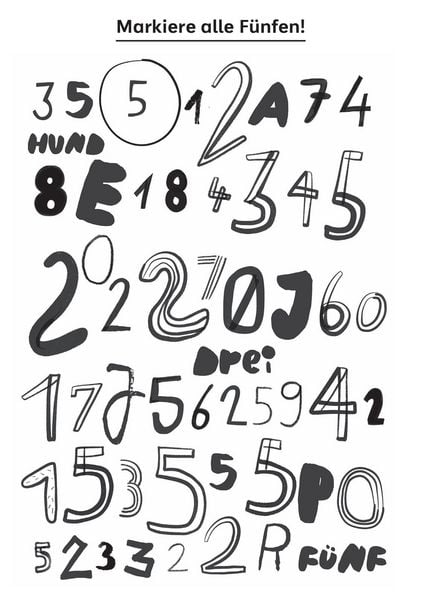 Markiere alle Fünfen!
3 5 5 1 2 A 7 4
HUND
8 E 1 8 4 3 4 5
2 0 2 2 7 0 J 6 0
Drei
1 7 J 5 6 2 5 9 4 2
1 5 3 5 5 5 P O
5 2 3 3 2 2 R FÜNF